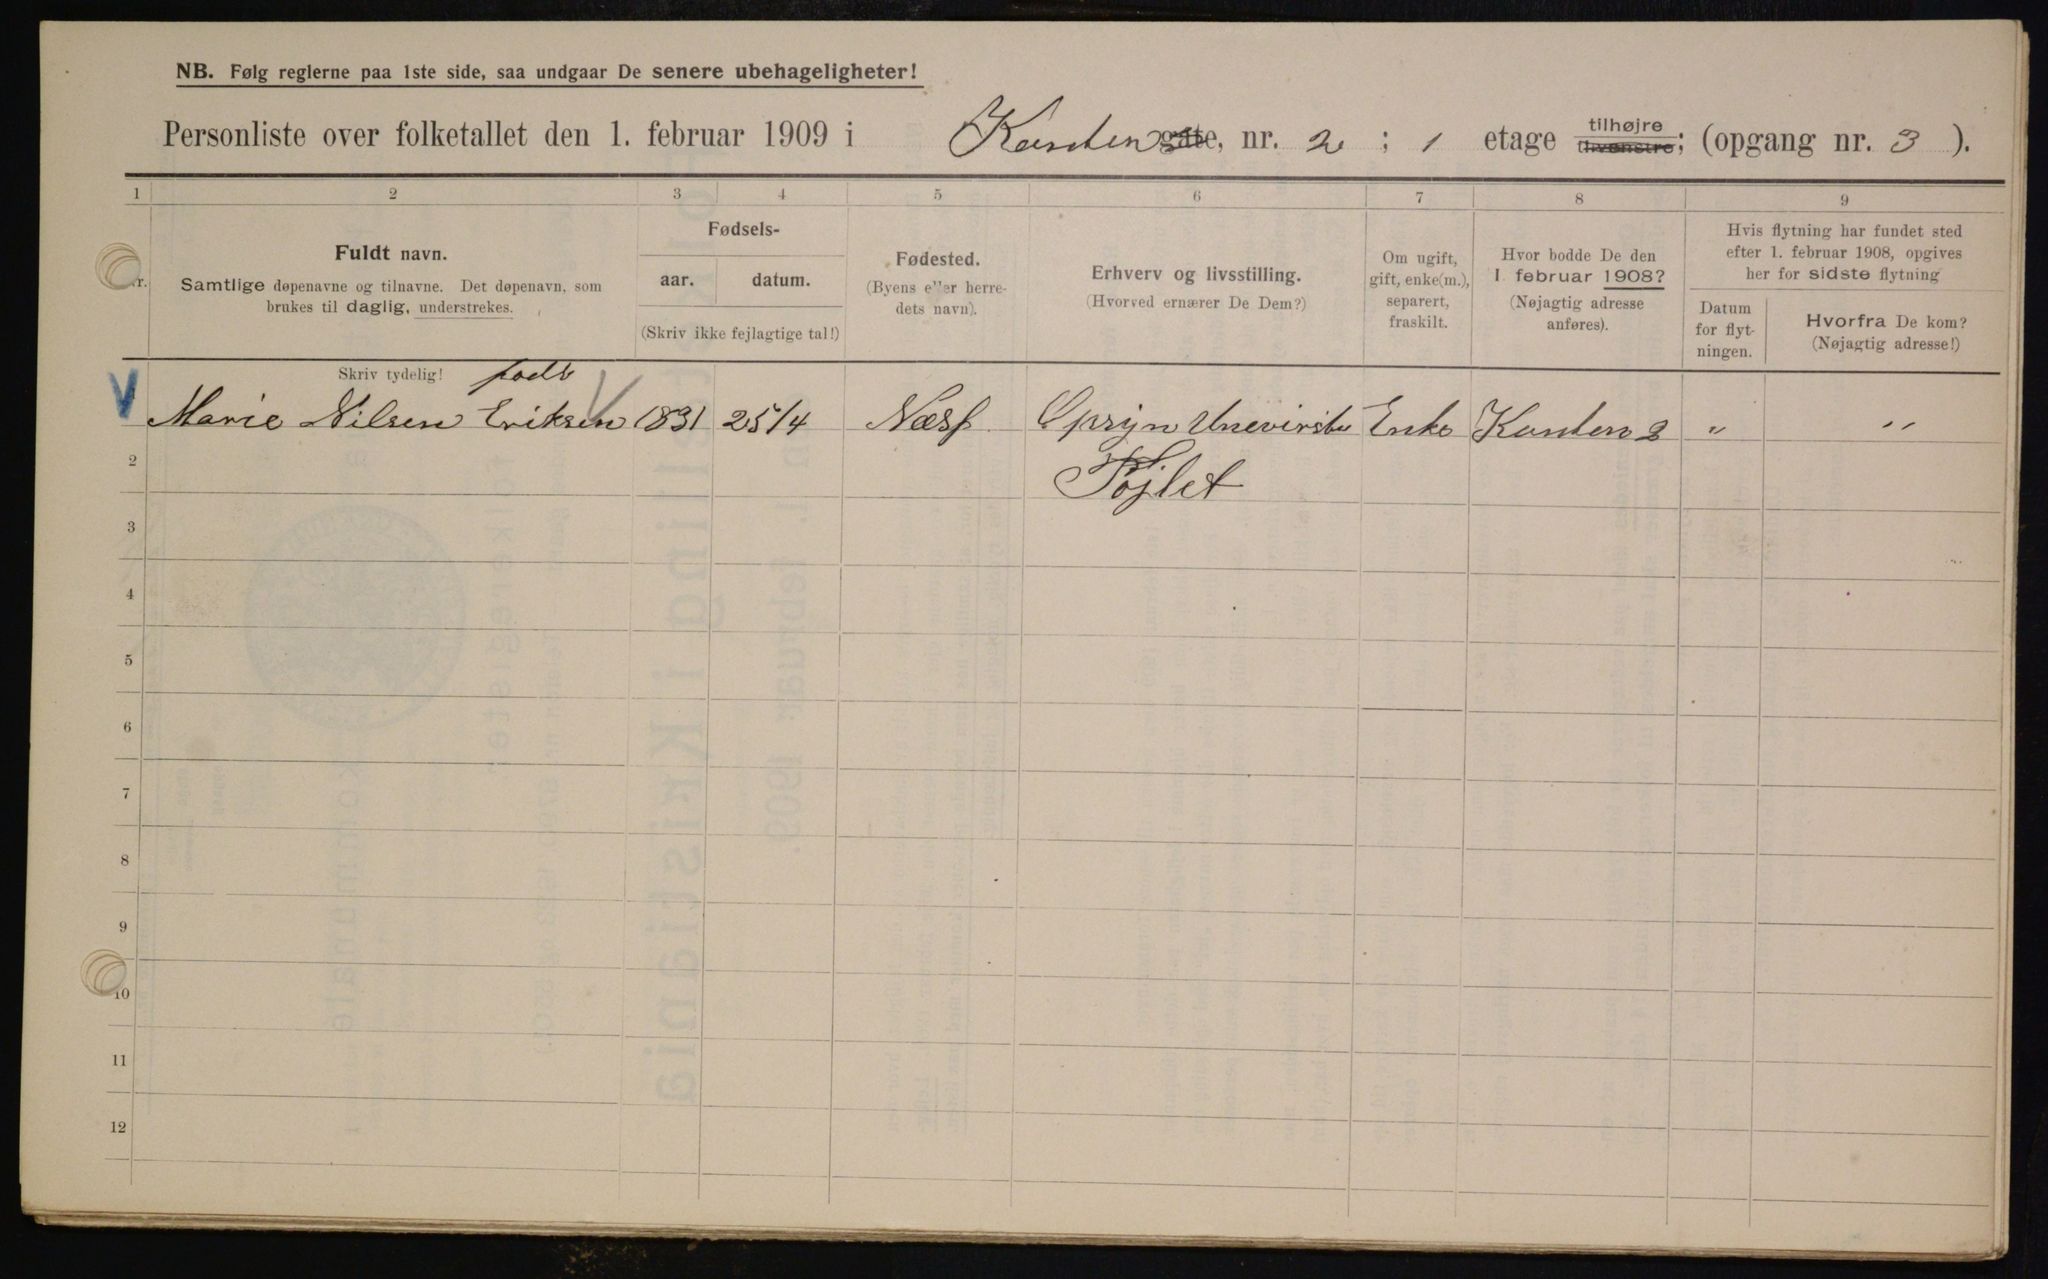 NB. Følg reglerne paa 1ste side, saa undgaar De senere ubehageligheter!
Personliste over folketallet den 1. februar 1909 i Kanten gate, nr. 2 ; 1 etage tilhøjre tilvenstre; (opgang nr. 3 ).
1 2 3 4 5 6 7 8 9
Fuldt navn.
Samtlige døpenavne og tilnavne. Det døpenavn, som
brukes til daglig, understrekes.
Fødsels-
aar. datum.
(Skriv ikke fejlagtige tal!)
Fødested.
(Byens eller herre-
dets navn).
Erhverv og livsstilling.
(Hvorved ernærer De Dem?)
Om ugift,
gift, enke(m.),
separert,
fraskilt.
Hvor bodde De den
1. februar 1908?
(Nøjagtig adresse
anføres).
Hvis flytning har fundet sted
efter 1. februar 1908, opgives
her for sidste flytning
Datum
for flyt-
ningen.
Hvorfra De kom?
(Nøjagtig adresse!)
Skriv tydelig! født
Marie Nilsen Eriksen 1831 25/4 Næss Opsyn Enke Kanten 2 " "
2
3
4
5
6
7
8
9
10
11
12